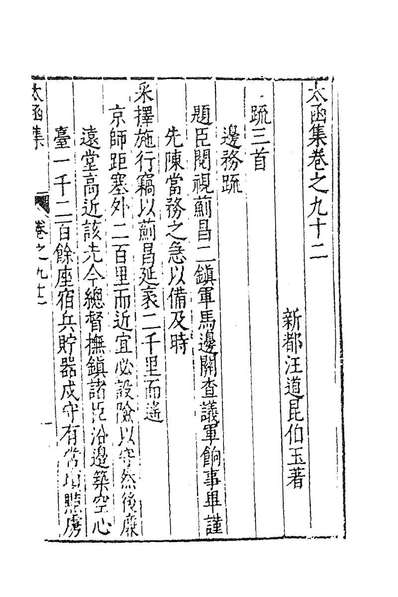 太函集卷之九十二
新都汪道昆伯玉著
疏三首
邊務疏
題臣閱視薊昌二鎮軍馬邊關查議軍餉事畢謹
先陳當務之急以備及時
采擇施行竊以薊昌延袤二千里而遙
京師距塞外二百里而近宜必設險以守然後廉
遠堂高近該先今總督撫鎮諸臣沿邊築空心
臺一千二百餘座宿兵貯器戍守有常虜
太函集
卷之九十二
一